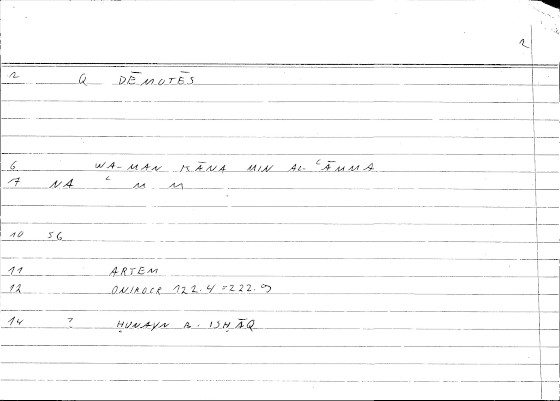 2
2 Q DĒMOTĒS
6 WA-MAN KĀNA MIN AL-ʿĀMMA
7 NA ʿ M M
10 SG
11 ARTEM
12 ONIROCR 122.4 = 222.9
14 ? ḤUNAYN B. ISḤĀQ